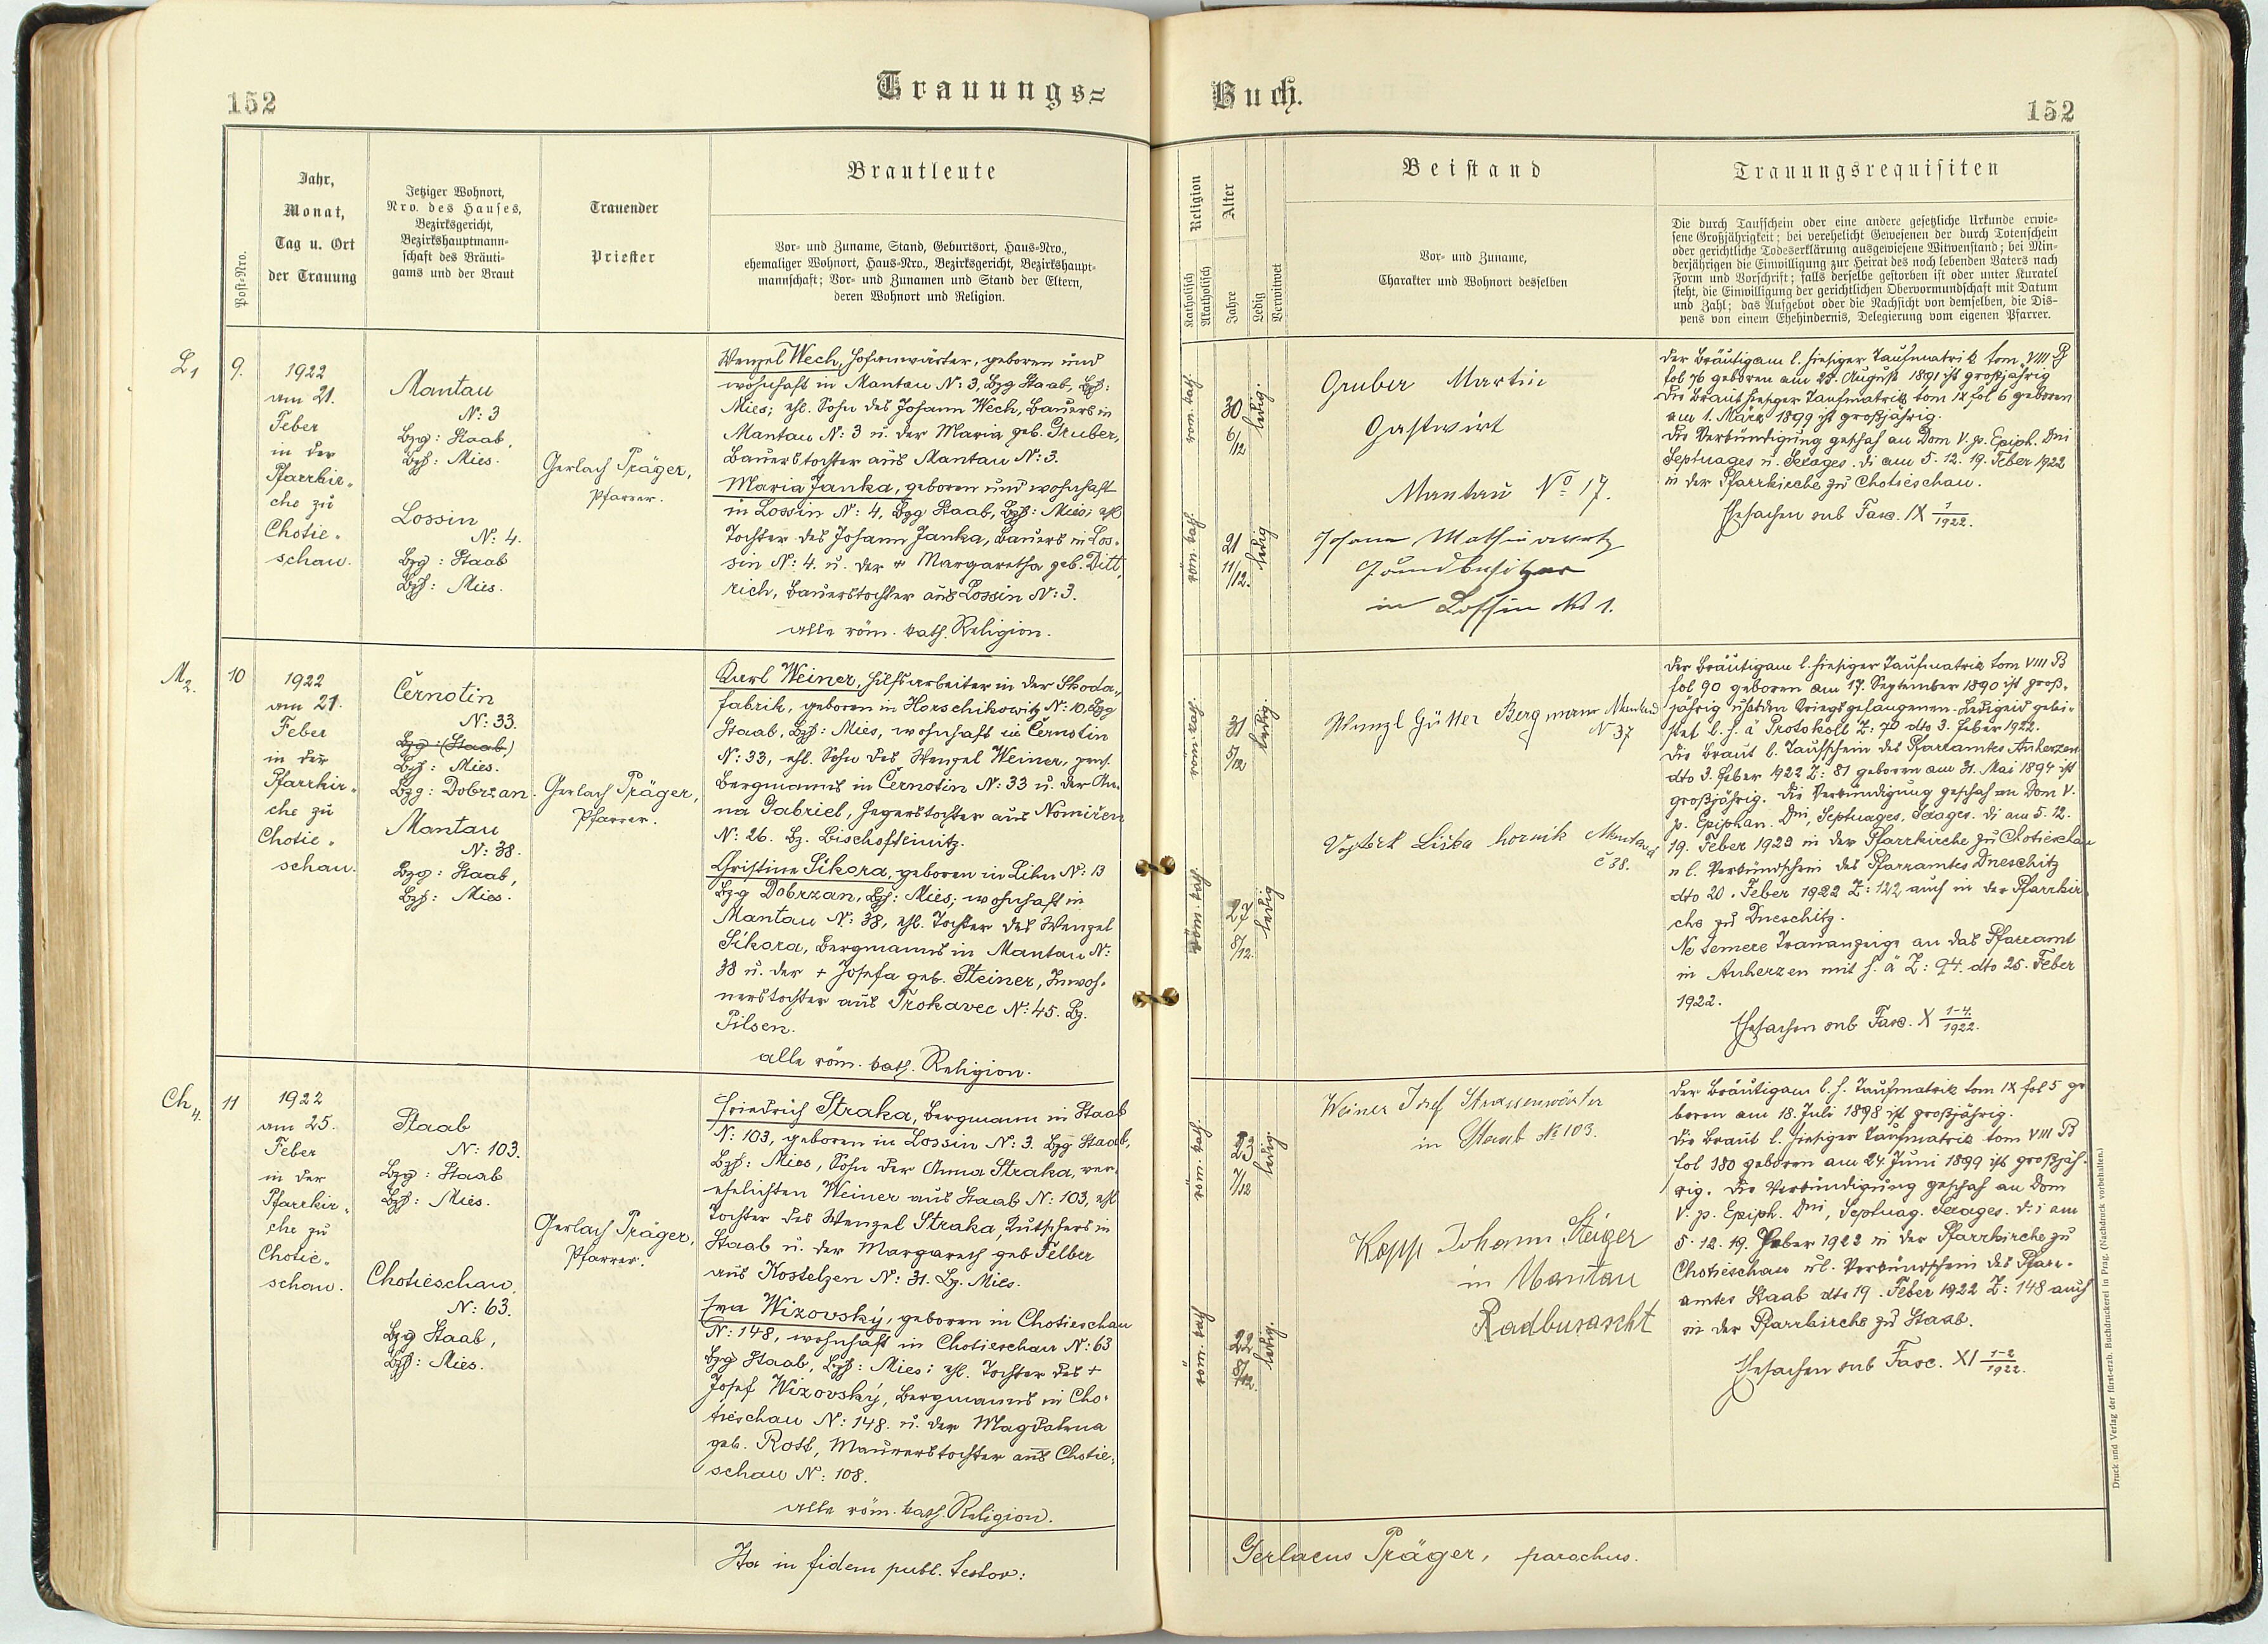 152
Trauungs=
Post-Nro.
Jahr,
Monat,
Tag u. Ort
der Trauung
Jetziger Wohnort,
Nro. des Hauses,
Bezirksgericht,
Bezirkshauptmann-
schaft des Bräuti-
gams und der Braut
Trauender
Priester
Brautleute
Vor- und Zuname, Stand, Geburtsort, Haus-Nro.,
ehemaliger Wohnort, Haus-Nro., Bezirksgericht, Bezirkshaupt-
mannschaft; Vor- und Zunamen und Stand der Eltern,
deren Wohnort und Religion.
L1
9.
1922
am 21.
Feber
in der
Pfarrkir-
che zu
Chotie-
schau.
Mantau
N: 3
Bzg: Staab,
Bzh: Mies.
Lossin
N: 4.
Bzg: Staab
Bzh: Mies.
Gerlach Präger,
Pfarrer.
Wenzel Wech, Hofanwärter, geboren und
wohnhaft in Mantau N: 3, Bzg Staab, Bzh:
Mies; ehl. Sohn des Johann Wech, Bauers in
Mantau N: 3 u. der Maria geb. Gruber,
Bauerstochter aus Mantau N: 3.
Maria Janka, geboren und wohnhaft
in Lossin N: 4, Bzg Staab, Bzh: Mies; ehl
Tochter des Johann Janka, Bauers in Los-
sin N: 4. u. der + Margaretha geb. Ditt-
rich, Bauerstochter aus Lossin N: 3.
alle röm. kath. Religion.
M2.
10
1922
am 21.
Feber
in der
Pfarrkir-
che zu
Chotie-
schau.
Černotin
N: 33.
Bzg: (Staab)
Bzh: Mies.
Bzg: Dobrzan.
Mantau
N: 38.
Bzg: Staab,
Bzh: Mies.
Gerlach Präger,
Pfarrer.
Karl Weiner, Hilfsarbeiter in der Skoda-
fabrik, geboren in Horschikowitz N: 10, Bzg
Staab, Bzh: Mies, wohnhaft in Černotin
N: 33, ehl. Sohn des Wenzel Weiner, pens.
Bergmanns in Černotin N: 33 u. der An-
na Gabriel, Hegerstochter aus Nomiřen
N: 26. Bz. Bischofteinitz.
Christine Sikora, geboren in Lihn N: 13
Bzg Dobrzan, Bzh: Mies; wohnhaft in
Mantau N: 38, ehl. Tochter des Wenzel
Sikora, Bergmanns in Mantau N:
38 u. der + Josefa geb. Steiner, Inwoh-
nerstochter aus Trokavec N: 45. Bz.
Pilsen.
alle röm. kath. Religion.
Ch4.
11
1922
am 25.
Feber
in der
Pfarrkir-
che zu
Chotie-
schau.
Staab
N: 103.
Bzg: Staab
Bzh: Mies.
Chotieschau.
N: 63.
Bzg Staab,
Bzh: Mies.
Gerlach Präger,
Pfarrer.
Friedrich Straka, Bergmann in Staab
N: 103, geboren in Lossin N: 3. Bzg Staab,
Bzh: Mies, Sohn der Anna Straka, ver-
ehelichten Weiner aus Staab N: 103, ehl
Tochter des Wenzel Straka, Kutschers in
Staab u. der Margareth geb Felber
aus Kostelzen N: 31. Bz. Mies.
Eva Wizovský, geboren in Chotieschau
N: 148, wohnhaft in Chotieschau N: 63
Bzg Staab, Bzh: Mies; ehl. Tochter des +
Josef Wizovský, Bergmanns in Cho-
tieschau N: 148. u. der Magdalena
geb. Rott, Maurerstochter aus Chotie-
schau N: 108.
alle röm. kath. Religion.
Ita in fidem publ. testor:
Buch.
152
Religion
Katholisch
Akatholisch
Alter
Jahre
Ledig
Verwitwet
Beistand
Vor- und Zuname,
Charakter und Wohnort desselben
Trauungsrequisiten
Die durch Taufschein oder eine andere gesetzliche Urkunde erwie-
sene Großjährigkeit; bei verehelicht Gewesenen der durch Totenschein
oder gerichtliche Todeserklärung ausgewiesene Witwenstand; bei Min-
derjährigen die Einwilligung zur Heirat des noch lebenden Vaters nach
Form und Vorschrift; falls derselbe gestorben ist oder unter Kuratel
steht, die Einwilligung der gerichtlichen Obervormundschaft mit Datum
und Zahl; das Aufgebot oder die Nachsicht von demselben, die Dis-
pens von einem Ehehindernis, Delegierung vom eigenen Pfarrer.
röm. kath.
30
6/12
ledig.
röm. kath.
21
11/12.
ledig
Gruber Martin
Gastwirt
Mantau No 17.
Johann
Grundbesitzer
in Lossin No 1.
Der Bräutigam l. hiesiger Taufmatrik tom VIII B
fol 76 geboren am 25. August 1891 ist großjährig
Die Braut hiesiger Taufmatrik tom IX fol 6 geboren
am 1. März 1899 ist großjährig.
Die Verkündigung geschah an Dom V. p. Epiph. Dni
Septuages u. Sexages. di am 5. 12. 19. Feber 1922
in der Pfarrkirche zu Chotieschau.
Ehesachen sub Fasc. IX 1/1922.
röm. kath.
31
5/12
ledig
röm. kath
27
8/12.
ledig
Wenzl Gütter Bergmann Mantau
N 37
Vojtěch Liška horník Mantau
č 38.
Der Bräutigam l. hiesiger Taufmatrik tom VIII B
fol 90 geboren am 17. September 1890 ist groß-
jährig u hat den Kriegsgefangenen-Ledigeid gelei-
stet l. h. ä Protokoll Z: 70 dto 3. Feber 1922.
Die Braut l. Taufschein des Pfarramtes Auherzen
dto 3. Feber 1922 Z: 81 geboren am 31. Mai 1894 ist
großjährig. Die Verkündigung geschah an Dom V.
p. Epiphan. Dni, Septuages, Sexages. di am 5. 12.
19. Feber 1922 in der Pfarrkirche zu Chotieschau
u l. Verkündschein des Pfarramtes Dneschitz
dto 20. Feber 1922 Z: 122 auch in der Pfarrkir-
che zu Dneschitz.
Ne temere Trauanzeige an das Pfarramt
in Auherzen mit h. ä Z: 94. dto 25. Feber
1922.
Ehesachen sub Fasc. X 1-4./1922.
röm. kath.
23
7/12
ledig.
röm. kath
22
8/12.
ledig.
Weiner Josef Strassenwärter
in Staab No 103.
Kopp Johann Steiger
in Mantau
Radbusascht
Der Bräutigam l. h. Taufmatrik tom IX fol 5 ge
boren am 18. Juli 1898 ist großjährig.
Die Braut l. hiesiger Taufmatrik tom VIII B
fol 180 geboren am 24. Juni 1899 ist großjäh-
rig. Die Verkündigung geschah an Dom
V. p. Epiph. Dni, Septuag. Sexages. d: i am
5. 12. 19. Feber 1922 in der Pfarrkirche zu
Chotieschau u l. Verkündschein des Pfarr-
amtes Staab dto 19. Feber 1922 Z: 148 auch
in der Pfarrkirche zu Staab.
Ehesachen sub Fasc. XI 1-2/1922.
Gerlacus Präger, parochus.
Druck und Verlag der fürst-erzb. Buchdruckerei in Prag. (Nachdruck vorbehalten.)